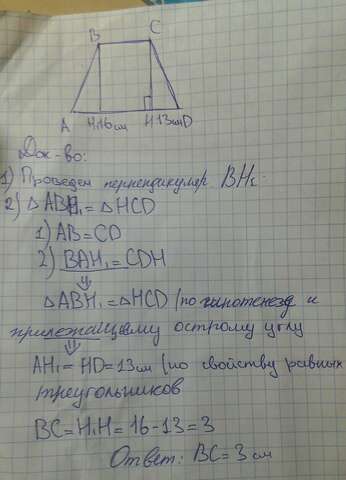 B C
A H₁ 16 см H 13 см D
Док-во:
1) Проведем перпендикуляр BH₁.
2) △ABH₁ = △HCD
1) AB = CD
2) BAH₁ = CDH
⇓
△ABH₁ = △HCD (по гипотенезд и
прилежащему острому углу
⇓
AH₁ = HD = 13 см (по свойству равных
треугольников
BC = H₁H = 16 - 13 = 3
Ответ: BC = 3 см